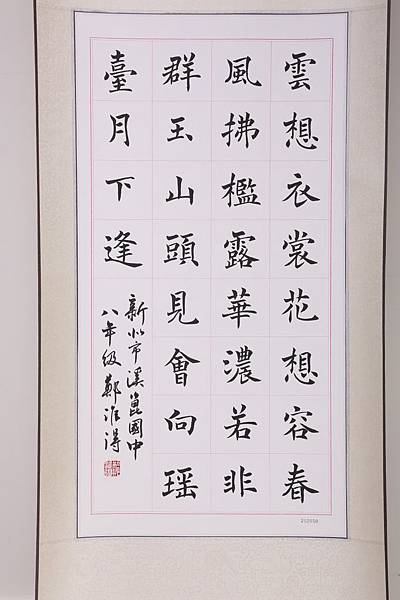 雲想衣裳花想容春
風拂檻露華濃若非
群玉山頭見會向瑶
臺月下逢
新北市溪崑國中
八年級鄭淮得